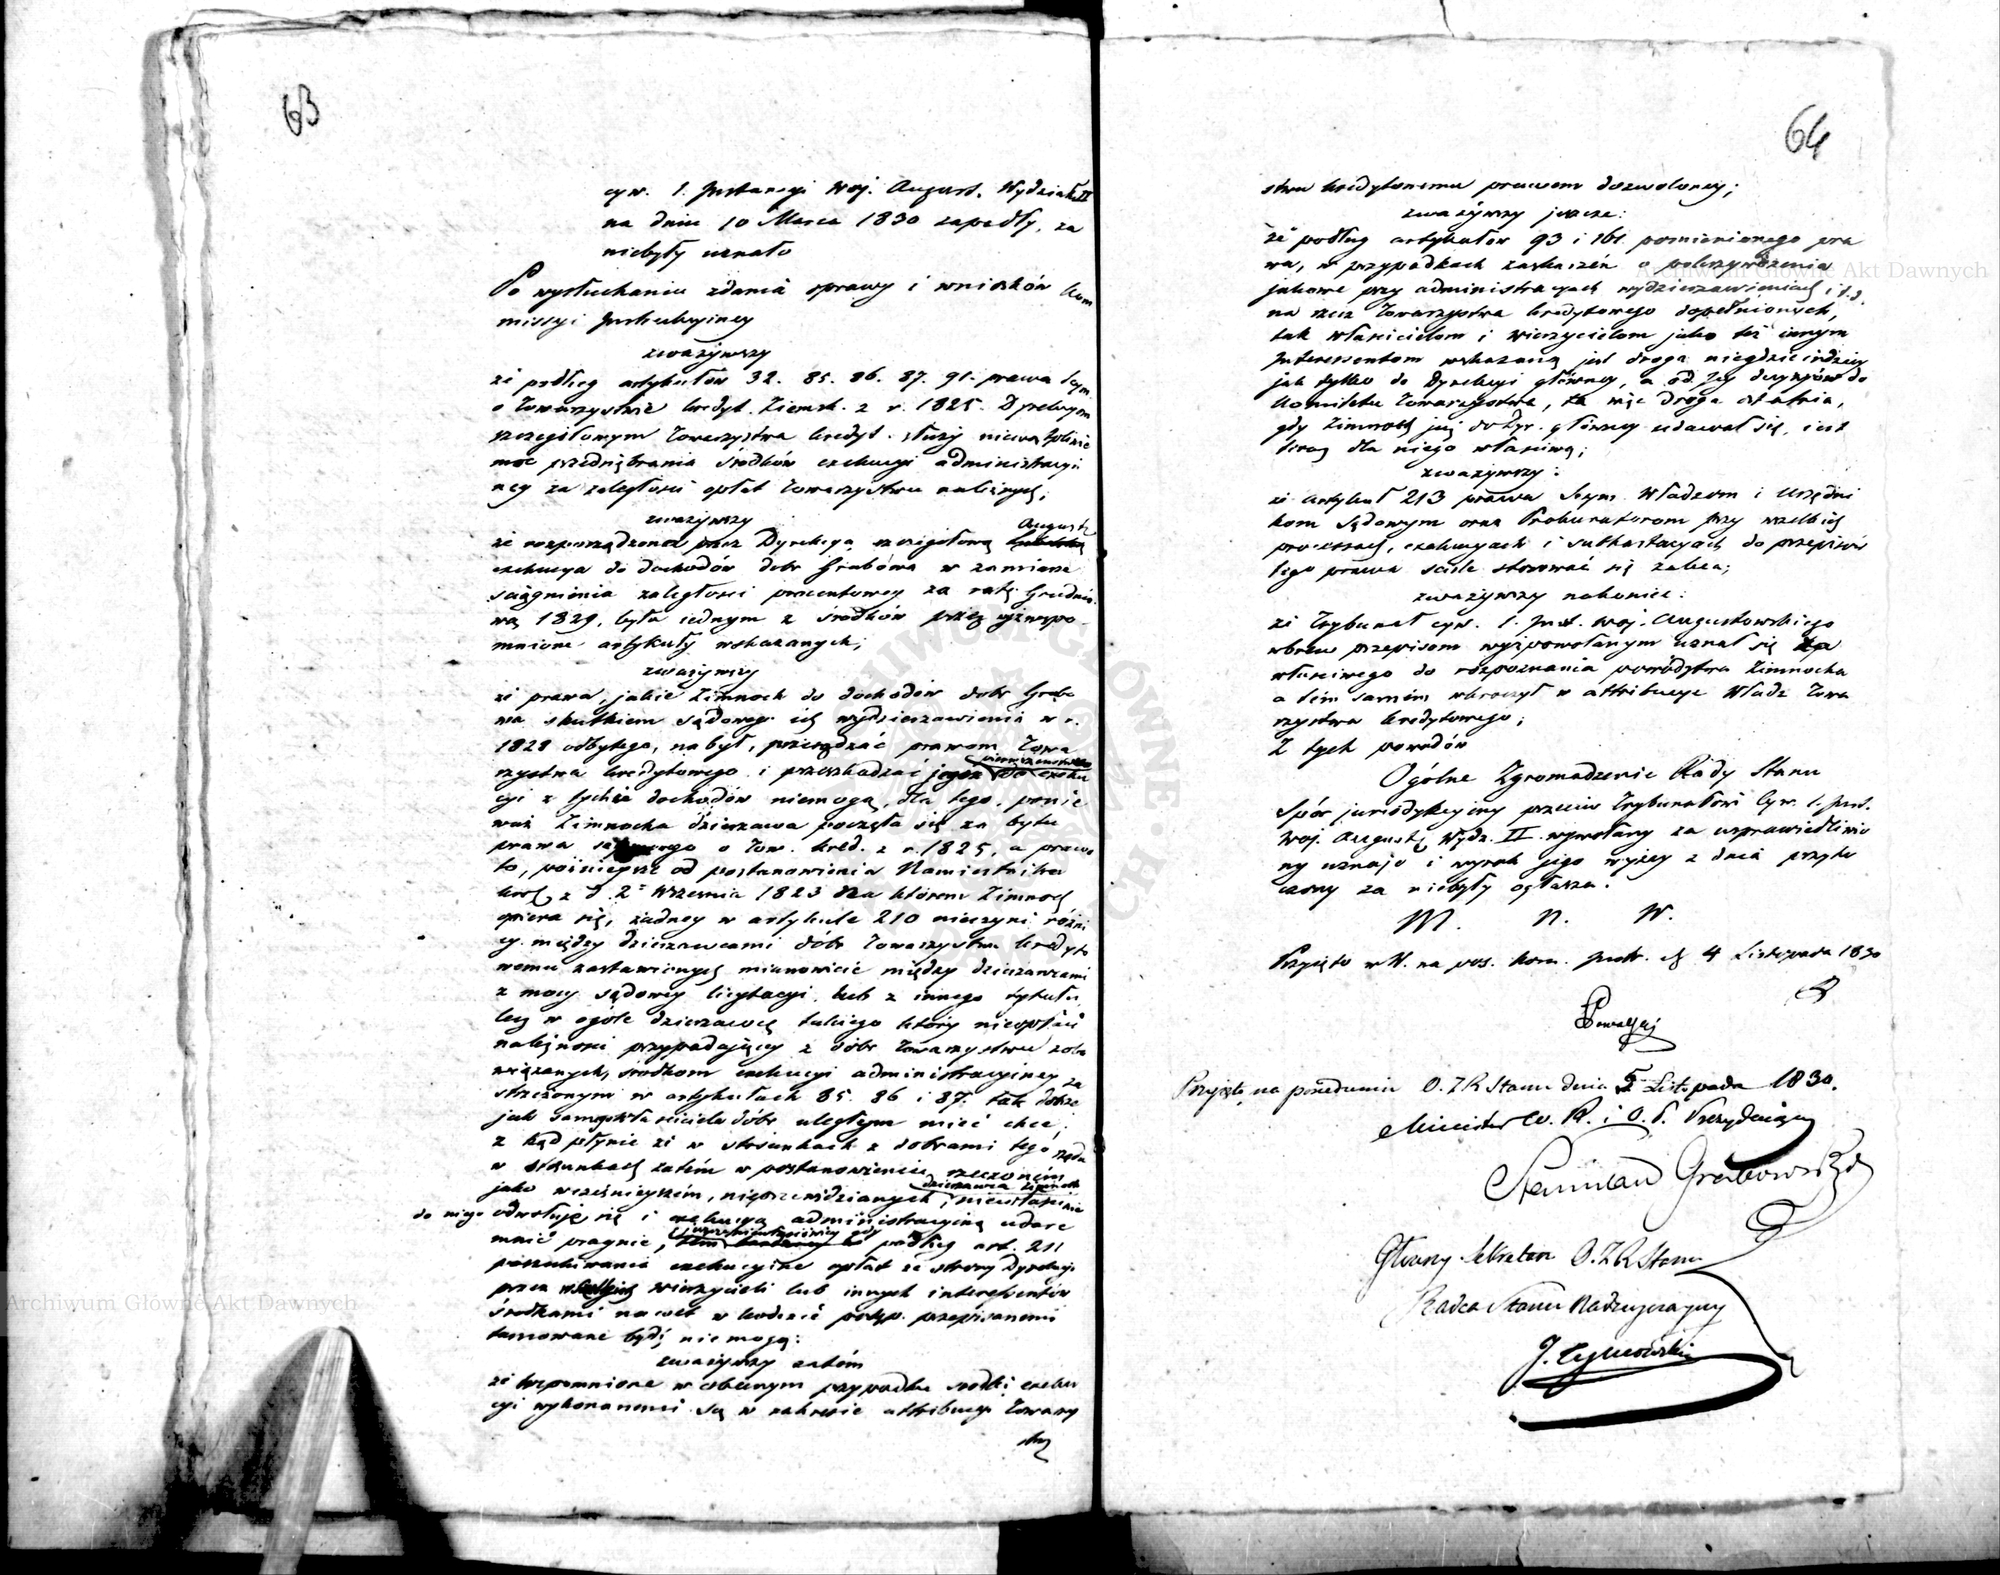 63
cyw. 1. Instancyi Woj. August. Wydziału II
na dniu 10 Marca 1830 zapadły, za
niebyły uznało
Po wysłuchaniu zdania sprawy i wniosków Kom
missyi Instrukcyiney
zważywszy
że podług artykułów 32. 85. 86. 87. 91. prawa Seym.
o Towarzystwie kredyt. Ziemsk. z r. 1825. Dyrekcyom
szczegółowym Towarzystwa kredyt. służy niewątpliwie
moc przedsiębrania środków exekucyi administracyi
ney za zaległości opłat Towarzystwu należnych;
zważywszy
August.
że rozporządzona przez Dyrekcyą szczegółową
exekucya do dochodów dóbr Grabowa w zamiarze
ściągnienia zaległości procentowey za ratę Grudnio
wą 1829, była iednym z środków przez wyżwspo
mnione artykuły wskazanych;
zważywszy
że prawa, jakie Zimnoch do dochodów dóbr Grabo
wa skutkiem sądowego ich wydzierżawienia w r.
1828 odbytego, nabył, przesądzać prawom Towa
pierwszeństwa
rzystwa kredytowego i przeszkadzać jego do exeku
cyi z tychże dochodów niemogą, dla tego, ponie
waż Zimnocha dzierżawa poczęła się za bytu
prawa o Tow. kred. z r. 1825, a prawo
to, późnieysze od postanowienia Namiestnika
Król. z d. 2 Września 1823 na którem Zimnoch
opiera się, żadney w artykule 210 nieczyni różni
cy między dzierżawcami dóbr Towarzystwu kredyto
wemu zastawionych mianowicie między dzierżawcami
z mocy sądowey licytacyi lub z innego tytułu
lecz w ogóle dzierżawcę takiego który nieopłaci
należności przypadaiącey z dóbr Towarzystwu zobo
wiązanych, środkom exekucyi administracyiney za
strzeżonym w artykułach 85. 86 i 87. tak dobrze
jak samego właściciela dóbr uległym mieć chce;
z kąd płynie że w stosunkach z dobrami tego rzędu
w stosunkach zatém w postanowieniu rzeczoném
dzierżawca Zimnoch
jako wcześnieyszém, nieprzewidzianych, niewłaściwie
do niego odwołuje się i exekucyą administracyiną udare
mnić pragnie, podług art. 211
poszukiwania exekucyine opłat ze strony Dyrekcyi
przez wszelkich wierzycieli lub innych interessentów
środkami nawet w kodexie postęp. przepisanemi
tamowane bydź nie mogą:
zważywszy zatém
że wspomnione w obecnym przypadku środki exeku
cyi wykonanemi są w zakresie attribucyi Towarzy
stwu
64
stwu kredytowemu prawem dozwolonéy;
zważywszy jeszcze:
że podług artykułów 93 i 161 pomienionego pra
wa, w przypadkach zaskarżeń o pokrzywdzenia
jakowe przy administracyach wydzierżawieniach i t. d.
na rzecz Towarzystwa kredytowego dopełnionych,
tak właścicielom i wierzycielom jako też innym
Interessentom wskazaną jest droga niegdzie indziey
jak tylko do Dyrekcyi główney, a od jey decyzyów do
Komitetu Towarzystwa, ta więc droga ostatnia,
gdy Zimnoch już do Dyr. główney udawał się, iest
teraz dla niego właściwą;
zważywszy:
że artykuł 213 prawa Seym. Władzom i Urzędni
kom sądowym oraz Prokuratorom przy wszelkich
processach, exekucyach i subhastacyach do przepisów
tego prawa ściśle stosować się zaleca;
zważywszy nakoniec:
że Trybunał cyw. 1. Inst. Woj. Augustowskiego
wbrew przepisom wyżpowołanym uznał się za
właściwego do rozpoznania powództwa Zimnocha
a tém samém wkroczył w attribucye Władz Towa
rzystwa kredytowego;
Z tych powodów
Ogólne Zgromadzenie Rady Stanu
Spór jurisdykcyiny przeciw Trybunałowi Cyw. 1. Inst.
Woj. August. Wydz. II wywołany za usprawiedliwio
ny uznaje i wyrok jego wyżey z dnia przyto
czony za niebyły ogłasza.
M. N. W.
Przyięto w W. na pos. kom. Instr. d. 4 Listopada 1830
Przyięto na posiedzeniu O. Z. R. Stanu dnia 5 Listopada 1830.
Minister W. R. i O. P. Prezyduiący
Stanisław Grabowski
Główny Sekretarz O. Z. R. Stanu
Radca Stanu Nadzwyczayny
J. Tymowski
Archiwum Główne Akt Dawnych
Archiwum Główne Akt Dawnych